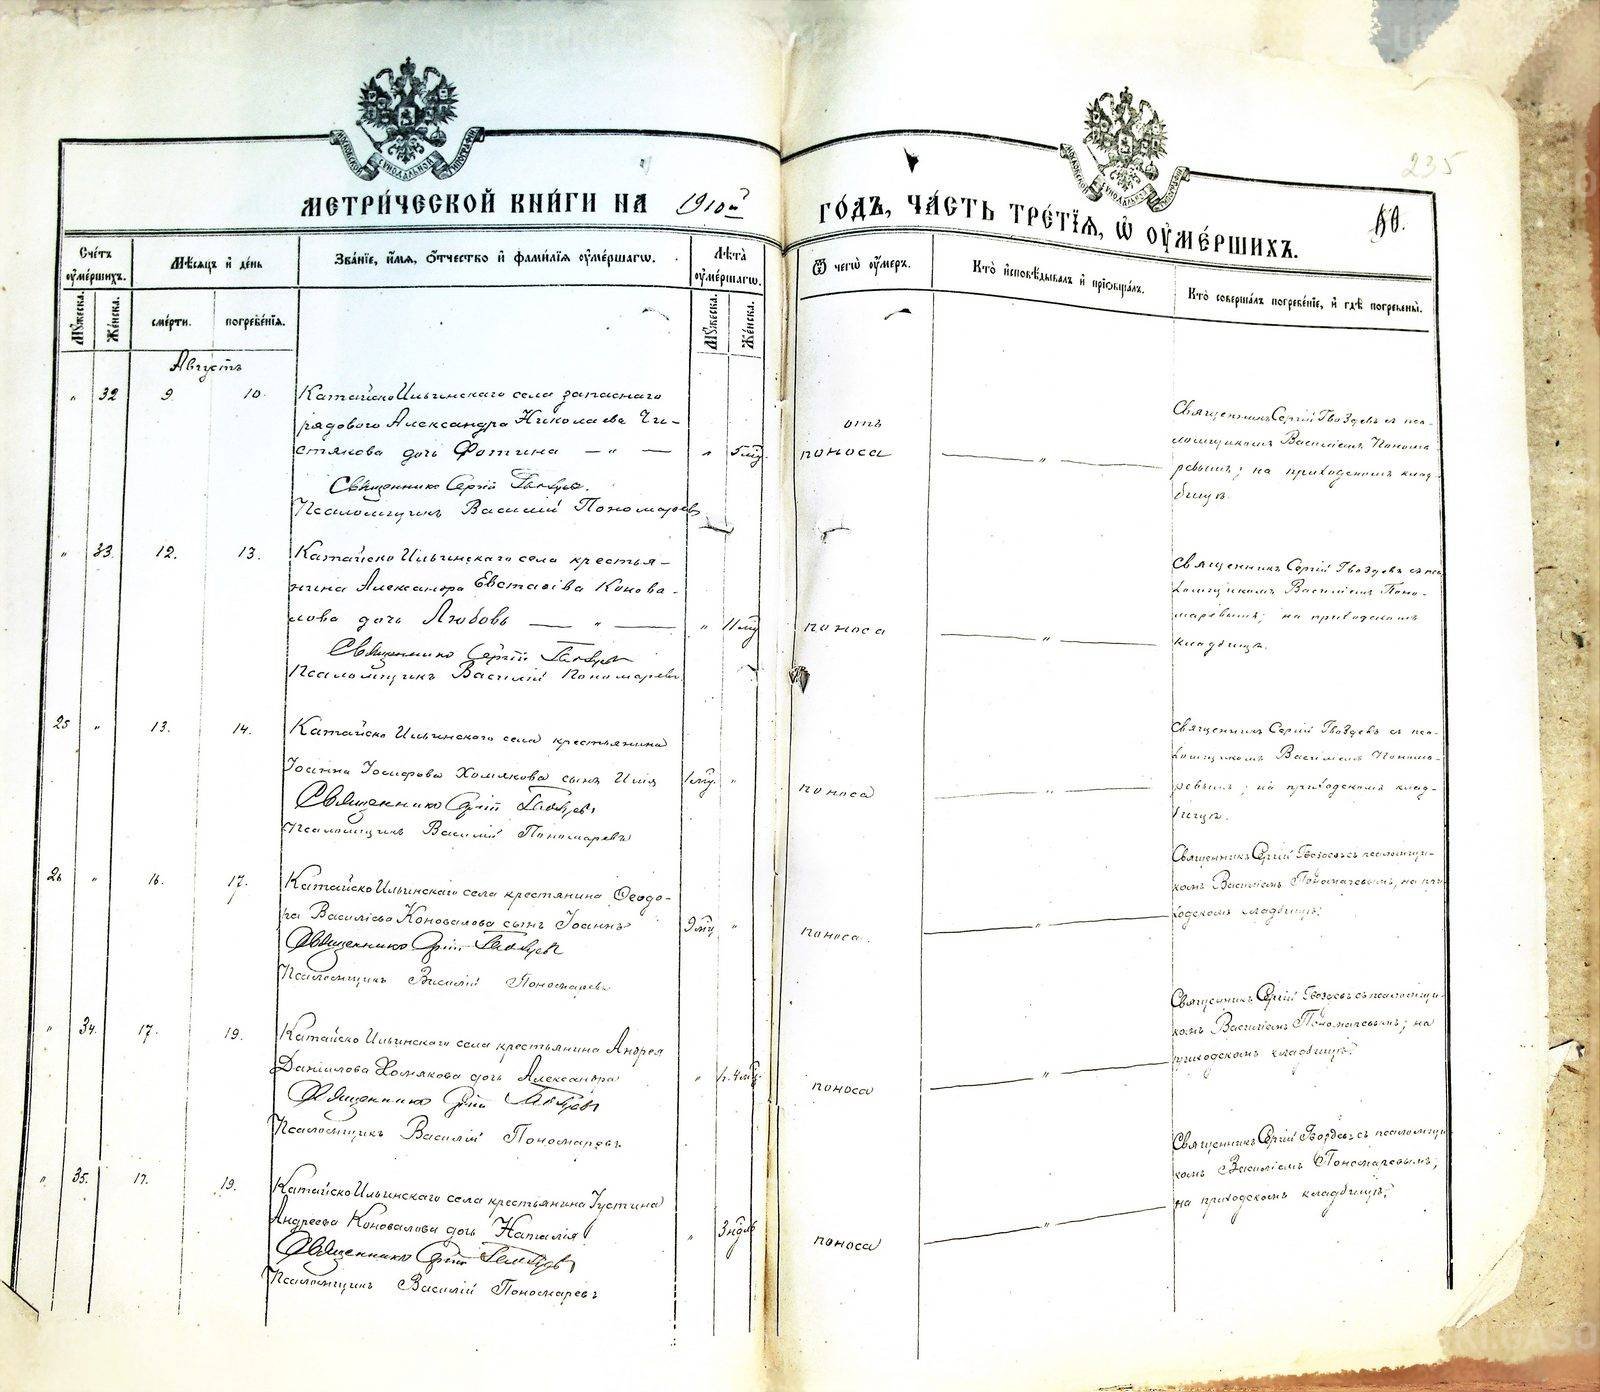 МЕТРИ́ЧЕСКОЙ КНИ́ГИ НА 1910й ГО́ДЪ, ЧА́СТЬ ТРЕ́ТІѦ, Ѡ҆ ОУ҆МЕ́РШИХЪ.
235
Сче́тъ оу҆ме́ршихъ.
Мѣ́сѧцъ и҆ де́нь
Зва́нїе, и҆́мѧ, ѻ҆́тчество и҆ фами́лїѧ оу҆ме́ршагѡ.
Лѣ́та оу҆ме́ршагѡ.
Ѿ чегѡ̀ оу҆́меръ.
Кто̀ и҆сповѣ́дывалъ и҆ прїѡбща́лъ.
Кто̀ соверша́лъ погребе́нїе, и҆ гдѣ̀ погребены̀.
Мꙋ́жеска. Же́нска. сме́рти. погребе́нїѧ. Мꙋ́жеска. Же́нска.
Августъ
" 32 9. 10. Катайско Ильинскаго села запаснаго
рядового Александра Николаева Чи-
стякова дочь Фотина — " — " 5 мц. отъ поноса — " —
Священникъ Сергій Гвоздевъ.
Псаломщикъ Василій Пономаревъ
Священникъ Сергій Гвоздевъ съ пса-
ломщикомъ Василіемъ Понома
ревымъ; на приходскомъ клад-
бищѣ.
" 33. 12. 13. Катайско Ильинскаго села крестья-
нина Александра Евстафіва Конова-
лова дочь Любовь — " — " 11 мц поноса — " —
Священникъ Сергій Гвоздевъ
Псаломщикъ Василій Пономаревъ
Священникъ Сергій Гвоздевъ съ пса
ломщикомъ Василіемъ Поно-
маревымъ; на приходскомъ
кладбищѣ.
25 " 13. 14. Катайско Ильинскаго села крестьянина
Іоанна Іосифова Хомякова сынъ Илія 1 мц. " поноса — " —
Священникъ Сергій Гвоздевъ
Псаломщикъ Василій Пономаревъ
Священникъ Сергій Гвоздевъ съ пса-
ломщикомъ Василіемъ Понома-
ревымъ; на приходскомъ клад-
бищѣ.
26 " 16. 17. Катайско Ильинскаго села крестянина Ѳеодо-
ра Василіева Коновалова сынъ Іоаннъ 9 мц " поноса. — " —
Священникъ Сергій Гвоздевъ
Псаломщикъ Василій Пономаревъ
Священникъ Сергій Гвоздевъ съ псаломщи-
комъ Василіемъ Пономаревымъ, на при-
ходскомъ кладбищѣ.
" 34. 17. 19. Катайско Ильинскаго села крестьянина Андрея
Даніилова Хомякова дочь Александра " 1 г. 4 мц. поноса — " —
Священникъ Сергій Гвоздевъ
Псаломщикъ Василій Пономаревъ
Священникъ Сергій Гвоздевъ съ псаломщи-
комъ Василіемъ Пономаревымъ; на
приходскомъ кладбищѣ.
" 35. 17. 19. Катайско Ильинскаго села крестьянина Густина
Андреева Коновалова дочь Наталія " 3 ндѣль поноса — " —
Священникъ Сергій Гвоздевъ
Псаломщикъ Василій Пономаревъ
Священникъ Сергій Гвоздевъ съ псаломщи
комъ Василіемъ Пономаревымъ;
на приходскомъ кладбищѣ.